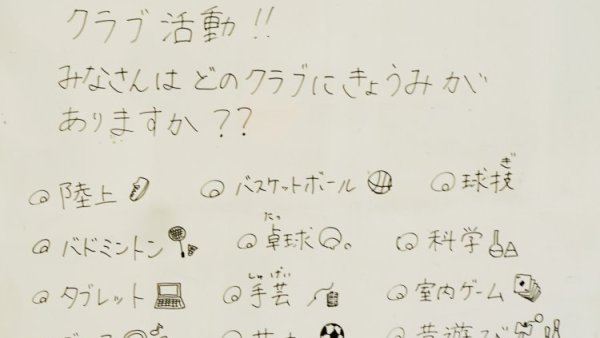 クラブ活動!!
みなさんは どのクラブにきょうみが
ありますか??
陸上 バスケットボール 球技 ぎ
バドミントン 卓球 たっ 科学
タブレット 手芸 しゅげい 室内ゲーム
昔遊び